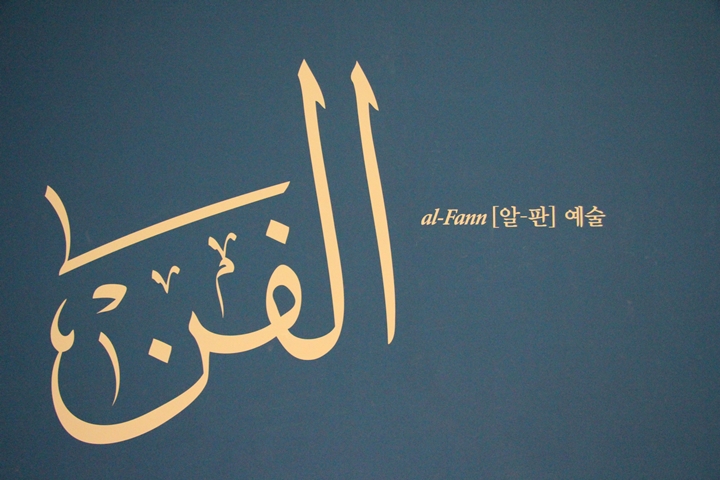 الفن
al-Fann [알-판] 예술